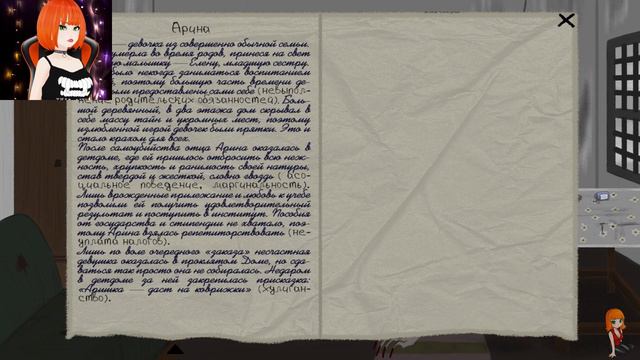 Арина
— девочка из совершенно обычной семьи.
умерла во время родов, принеся на свет
малышку — Елену, младшую сестру.
было некогда заниматься воспитанием
, поэтому большую часть времени де-
были предоставлены сами себе (невыпол-
нение родительских обязанностей). Боль-
шой деревянный, в два этажа дом скрывал в
себе массу тайн и укромных мест, поэтому
излюбленной игрой девочек были прятки. Это и
стало крахом для всех.
После самоубийства отца Арина оказалась в
детдоме, где ей пришлось отбросить всю неж-
ность, хрупкость и ранимость своей натуры,
став твердой и жесткой, словно гвоздь ( асо-
циальное поведение, маргинальность).
Лишь врожденные прилежание и любовь к учебе
позволили ей получить удовлетворительный
результат и поступить в институт. Пособия
от государства и стипендии не хватало, поэ-
тому Арина взялась репетиторствовать (не-
уплата налогов).
Лишь по воле очередного «заказа» несчастная
девушка оказалась в проклятом Доме, но сда-
ваться так просто она не собиралась. Недаром
в детдоме за ней закрепилась присказка:
«Аришка — даст на коврижки» (хулиган-
ство).